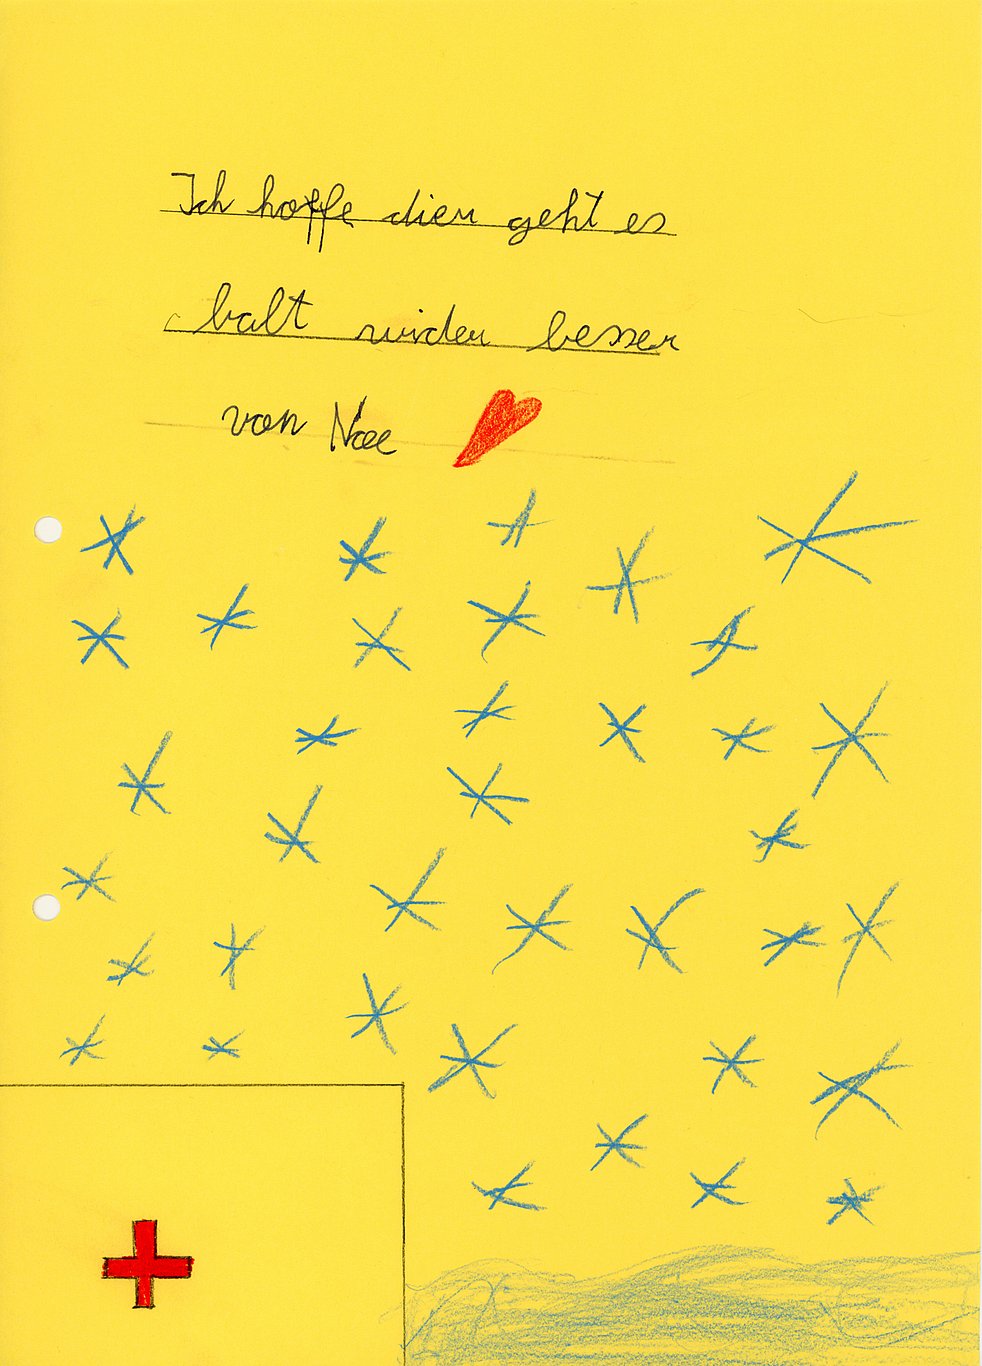 Ich hoffe dier geht es
balt wider besser
von Noe